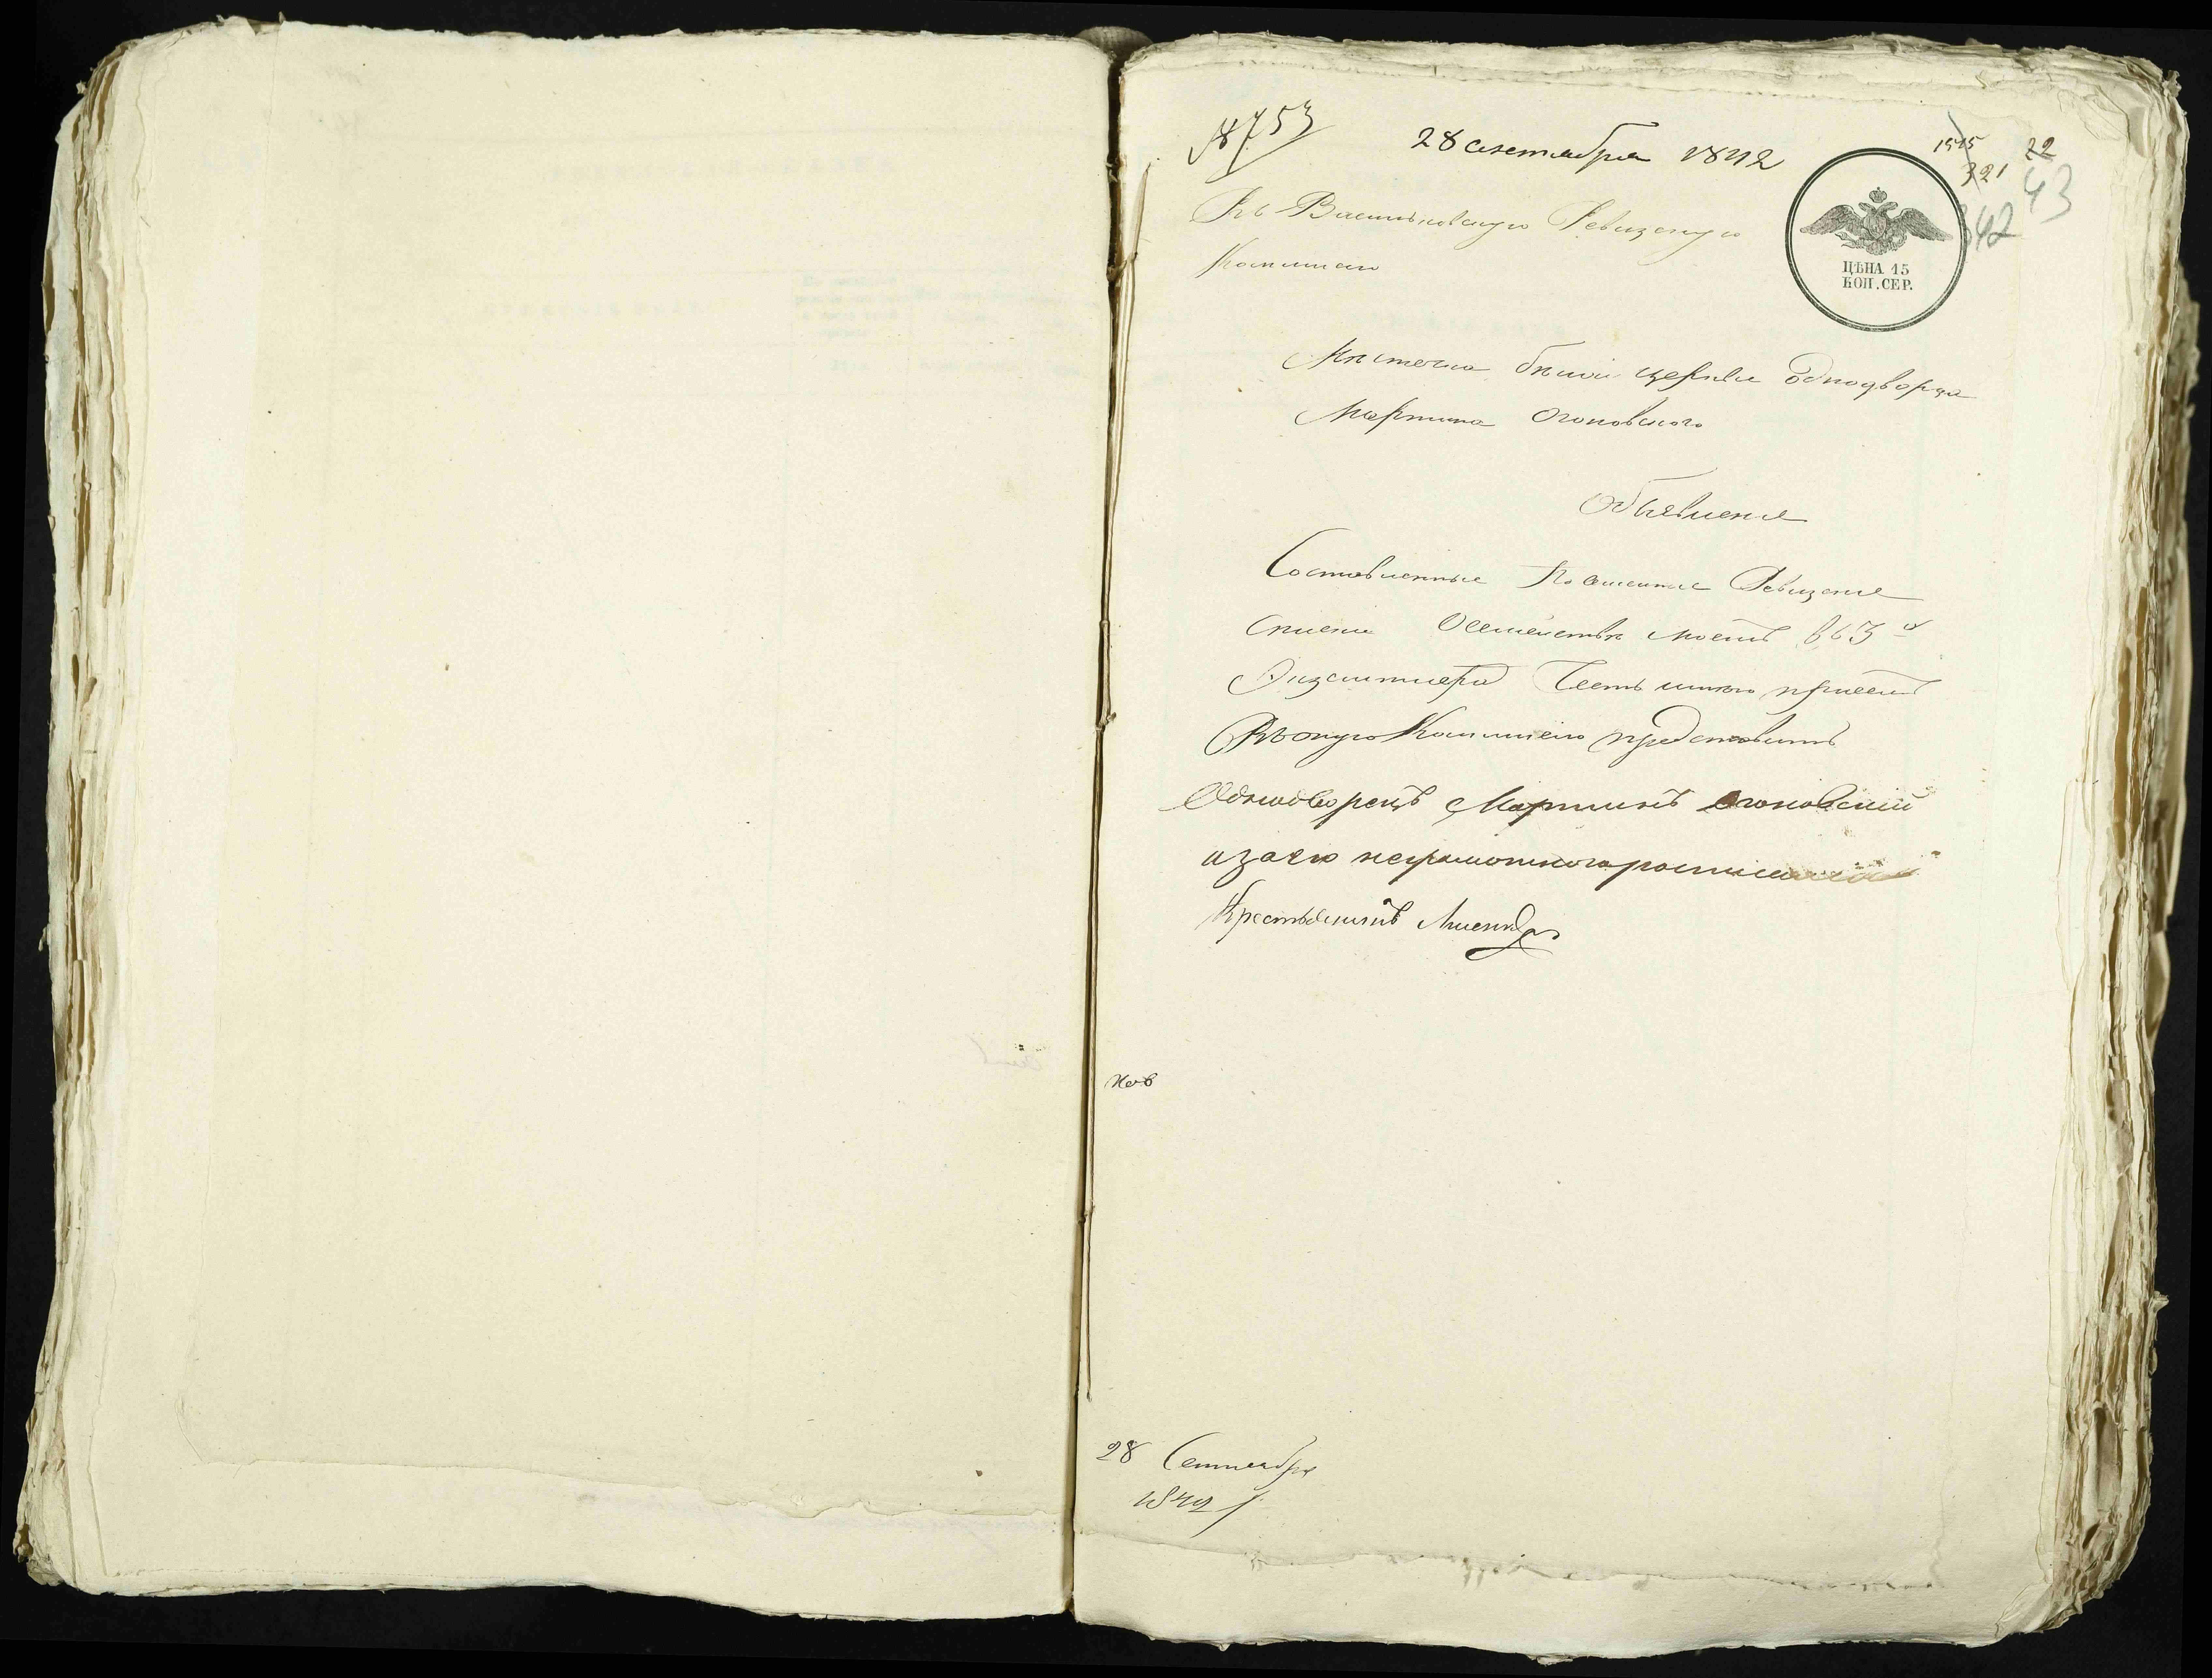 28 сентября 1842
1515
321
22
43
342
Въ Васильковскую Ревизскую
Комисию
ЦѢНА 15
КОП. СЕР.
Мѣстечка бѣлой церкви Однодворца
Мартина Огоновского
Объявление
Составленные Ревизские
списки Осемействѣ моемъ въ 3х
Экземплера Честь имею при семъ
Въ оную Комисию представить
Однодворецъ Мартинъ Огоновский
азаего неграмотного росписался
Крестьянинъ
28 Сентября
1842 г